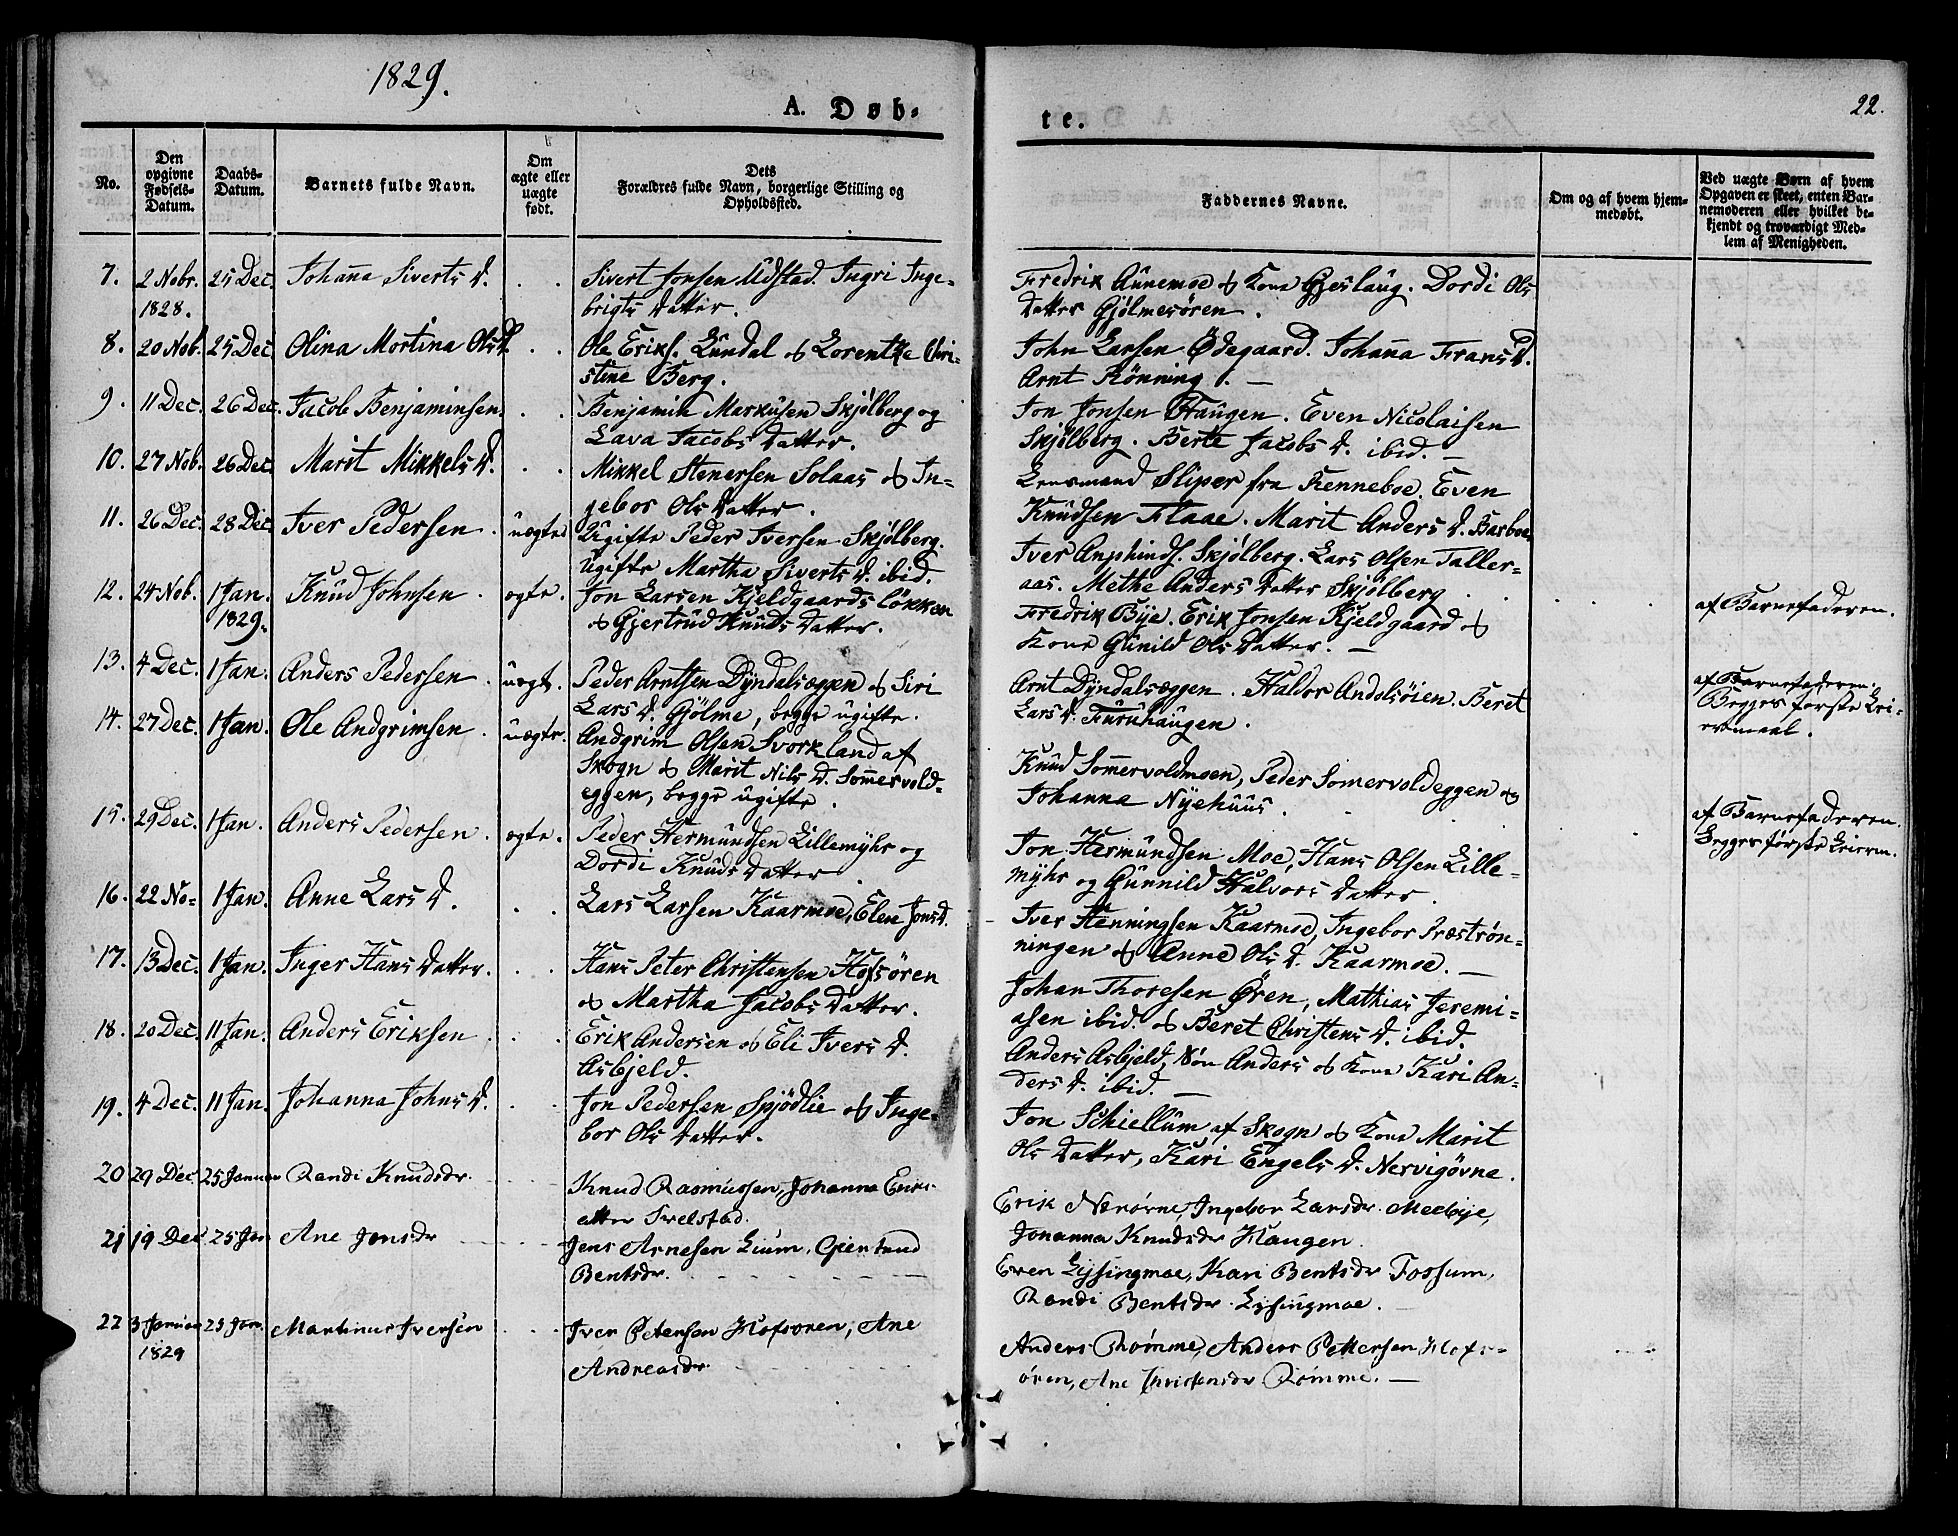 1829.
22.
A. Døb-
te.
No.
Den opgivne Fødsels-Datum.
Daabs-Datum.
Barnets fulde Navn.
Om ægte eller uægte født.
Dets Forældres fulde Navn, borgerlige Stilling og Opholdsted.
Faddernes Navne.
Om og af hvem hjemmedøbt.
Ved uægte Børn af hvem Opgaven er skeet, enten Barnemoderen eller hvilket bekjendt og troværdigt Medlem af Menigheden.
7. 2 Nobr. 25 Dec. Johanna Siverts D. Sivert Jonsen Udstad. Ingri Inge-
1828. brigts Datter.
Fredrik Aunemoe & Kone Gjeslaug. Dordi Ols
Datter Gjølmesøren.
8. 20 Nob. 25 Dec. Olina Mortina Ols D. Ole Eriks. Lundal & Lorentze Chri-
stine Berg.
John Larsen Ødegaard. Johanna Frans D.
Arnt Rønning. —
9. 11 Dec. 26 Dec. Jacob Benjaminsen. Benjamin Markusen Skjølberg og
Lava Jacobs Datter.
Jon Jonsen Haugen. Even Nicolaisen
Skjølberg. Berte Jacobs D. ibid. —
10. 27 Nob. 26 Dec. Marit Mikkels D. Mikkel Stenersen Solaas & In-
gebor Ols Datter.
Lensmand Sliper fra Renneboe. Even
Knudsen Flaae. Marit Anders D. Barboe.
11. 26 Dec. 28 Dec. Iver Pedersen. uægte Ugifte Peder Iversen Skjølberg.
ugifte Martha Siverts D. ibid.
Iver Skjølberg. Lars Olsen Taller-
aas. Methe Anders Datter Skjølberg
af Barnefaderen.
12. 24 Nob. 1 Jan. Knud Johnsen. ægte. Jon Larsen Kjeldgaardsløkken
1829. & Gjertrud Knuds Datter.
Fredrik Bye. Erik Jonsen Kjeldgaard &
Kone Gunild Ols Datter. —
13. 4 Dec. 1 Jan. Anders Pedersen. uægte. Peder Arntsen Dyndalsæggen & Siri
Lars D. Gjølme, begge ugifte.
Arnt Dyndalsæggen. Haldor Andolsøien. Beret
Lars D. Furuhaugen.
af Barnefaderen.
Begges første Lei-
ermaal.
14. 27 Dec. 1 Jan. Ole Andgrimsen. uægte. Andgrim Olsen Svorkland af
Skogn & Marit Nils D. Sommervold-
eggen, begge ugifte.
Knud Sommervoldmoen, Peder Somervoldeggen og
Johanna Nyehuus.
af Barnefaderen.
Begges første Leierm.
15. 29 Dec. 1 Jan. Anders Pedersen. ægte. Peder Hermundsen Lillemyhr og
Dordi Knuds Datter
Jon Hermundsen Moe, Hans Olsen Lille-
myhr og Gunnild Halvors Datter.
16. 22 No- 1 Jan. Anne Lars D. Lars Larsen Kaarmoe, Elen Jons D.
Iver Henningsen Kaarmoe, Ingebor Præstrøn-
ningen & Anne Ols D. Kaarmoe. —
17. 13 Dec. 1 Jan. Inger Hans Datter. Hans Peter Christensen Hofsøren
& Martha Jacobs Datter.
Johan Thoresen Øren, Mathias Jeremi-
asen ibid. & Beret Christens D. ibid.
18. 20 Dec. 11 Jan. Anders Eriksen Erik Andersen & Eli Ivers D.
Asbjeld.
Anders Asbjeld, Søn Anders & Kone Kari An-
ders D. ibid. —
19. 4 Dec. 11 Jan. Johanna Johns D. Jon Pedersen Spjødlie & Inge-
bor Ols Datter.
Jon Schiellum af Skogn & Kone Marit
Ols Datter, Kari Engels D. Nervigøvne.
20 29 Dec. 25 Januar Randi Knudsdr. Knud Rasmussen, Johanna Eriks-
atter
Erik Nærørne, Ingebor Larsdr. Meebye,
Johanna Knudsdr Haugen.
21 19 Dec 25 Jan Ane Jonsdr Jens Arnesen Lium, Gjertrud
Bentsdr.
Even Lysingmoe, Kari Bentsdr Fossum,
Randi Bentsdr Lysingmoe. —
22 3 Januar 25 Jan. Martinus Iversen Iver Petersen Hofsøren, Ane
1829 Andreasdr
Anders Rømme, Anders Pettersen Hofs-
øren, Ane Christensdr Rømme. —